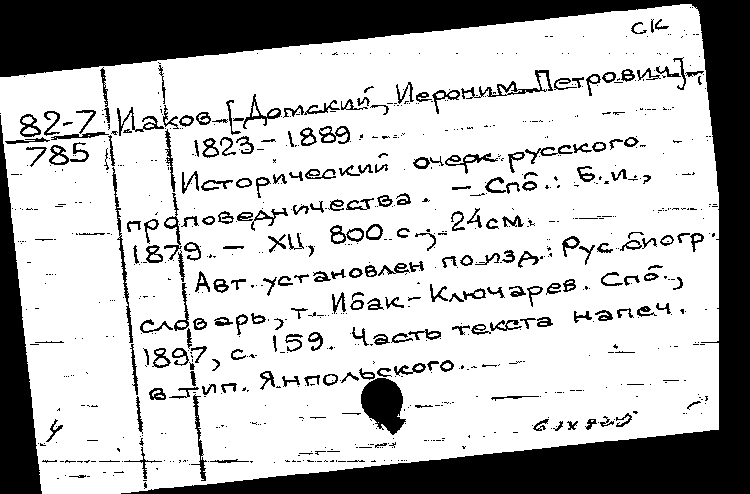 СК
82-7 Иаков [Домский, Иероним Петрович],
785 1823-1889.
Исторический очерк русского
проповедничества. - Спб.: Б.и.,
1879. - XII, 800 с.; 24см.
Авт. установлен по изд.: Рус. биогр.
словарь, т. Ибак-Ключарев. Спб.,
1897, с. 159. Часть текста напеч.
в тип. Янпольского.